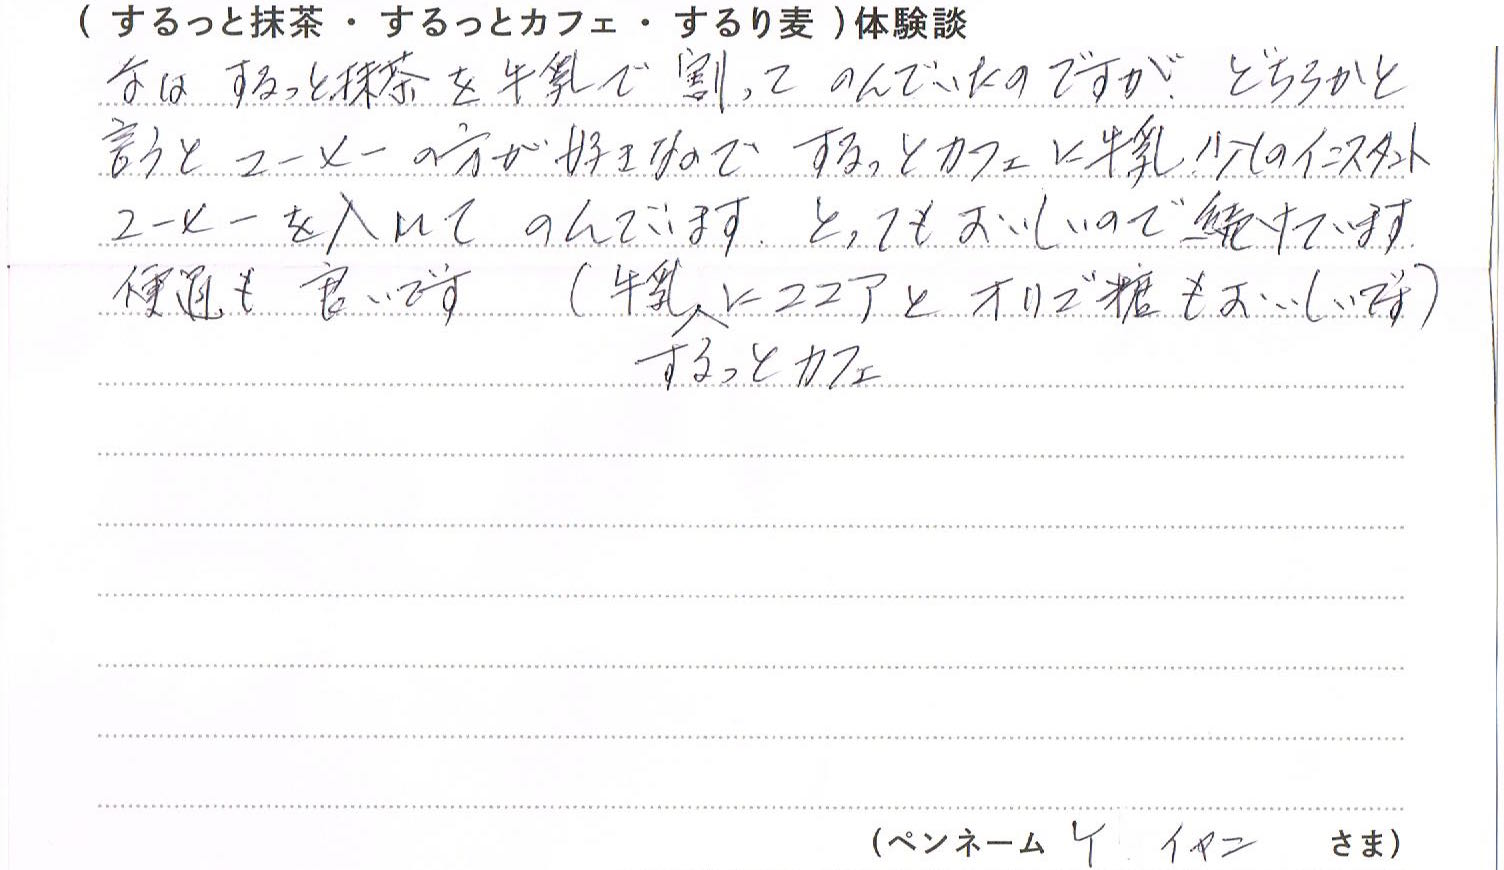 ( するっと抹茶 ・ するっとカフェ ・ するり麦 ) 体験談
はするっと抹茶を牛乳で割ってのんでいたのですが、どちらかと
言うとコーヒーの方が好きなので するっとカフェに牛乳、少しのインスタント
コーヒーを入れてのんでいます。とってもおいしいので続けています。
便通も良いです (牛乳にココアとオリゴ糖もおいしいです)
するっとカフェ
(ペンネーム さま)